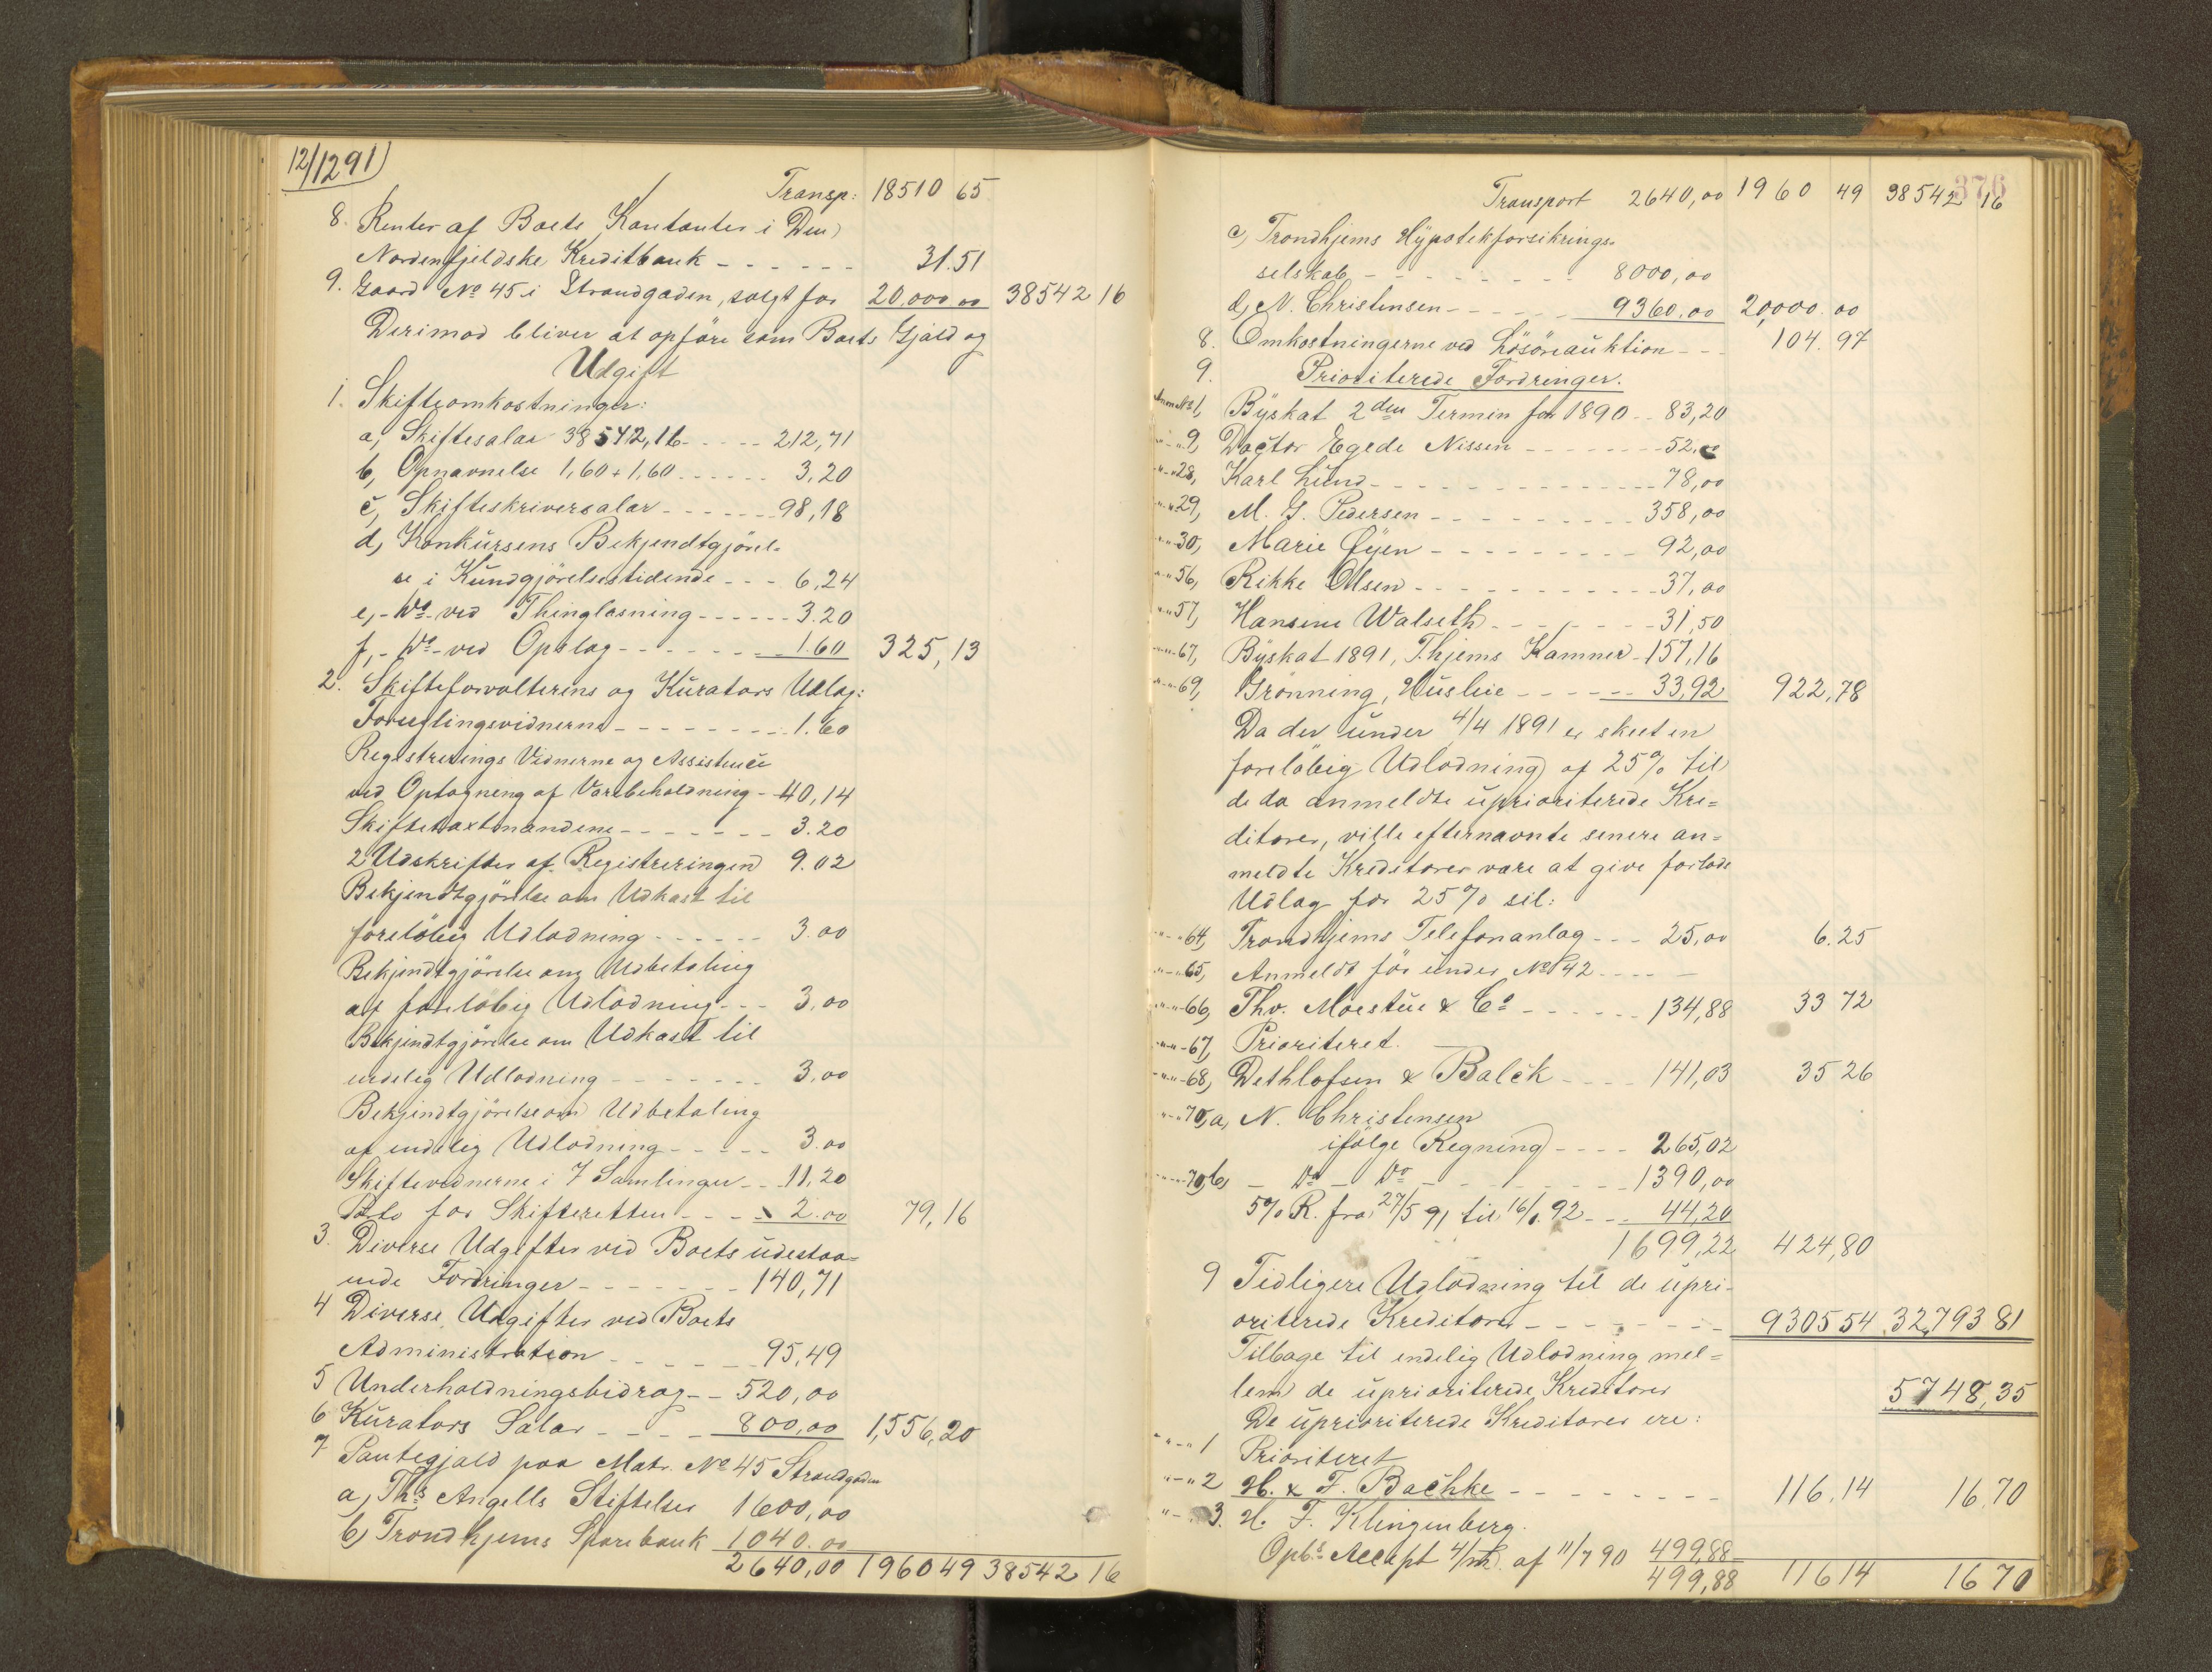 12/12 91)
Transp: 18510 65
8. Renter af Boets Kontanter i Den
Nordenfjeldske Kreditbank - - - - - - 31.51
9. Gaard No 45 i Strandgaden, solgt for 20,000 00 38542 16
Derimod bliver at opføre som Boets Gjæld og
Udgift
1. Skifteomkostninger:
a, Skiftesalar 38542,16 - - - - - 212,71
b, Opnævnelse 1,60 + 1,60 - - - - - - 3,20
c, Skifteskriversalar - - - - - - 98,18
d, Konkursens Bekjendtgjörel-
se i Kundgjörelsestidende - - - 6,24
e, - Do - ved Thinglæsning - - - - - - 3.20
f, - Do - ved Opslag - - - - - - - - 1.60 325,13
2. Skifteforvalterens og Kurators Udlæg:
Forseglingsvidnerne - - - - - - - - - 1.60
Registrerings Vidnerne og Assistence
ved Optagning af Varebeholdning - 40,14
Skiftetaxtmændene - - - - - - - 3.20
2 Udskrifter af Registreringen 9.02
Bekjendtgjörelse om Udkast til
foreløbig Udlodning - - - - - - 3.00
Bekjendtgjörelse om Udbetaling
af foreløbig Udlodning - - - 3,00
Bekjendtgjörelse om Udkast til
endelig Udlodning - - - - - - - 3,00
Bekjendtgjörelse om Udbetaling
af endelig Udlodning - - - - - 3.00
Skiftevidnerne i 7 Samlinger - - 11,20
Porto for Skifteretten - - - - 2.00 79,16
3. Diverse Udgifter ved Boets udestaa-
ende Fordringer - - - - - - - 140,71
4 Diverse Udgifter ved Boets
Administration - - - - - - 95,49
5 Underholdningsbidrag - - 520,00
6 Kurators Salar - - - - 800,00 1,556,20
7 Pantegjæld paa Matr. No 45 Strandgaden
a, Ths Angells Stiftelser 1600,00
b, Trondhjems Sparebank 1040.00
2640,00 1960 49 38542 16
376
Transport 2640,00 1960 49 38542 16
c, Trondhjems Hypotekforsikrings-
selskab - - - - - - - - 8000,00
d, N. Christensen - - - - - 9360.00 20,000.00
8. Omkostningerne ved Lösöreauktion - - - 104.97
9. Prioriterede Fordringer.
Anm No 1, Byskat 2den Termin for 1890 - - 83,20
" - " 9, Doctor Egede Nissen - - - - - - - - 52,00
" - " 28, Karl Lund - - - - - - - - - - - - - - - 78,00
" - " 29, M. G. Pedersen - - - - - - - - - 358,00
" - " 30, Marie Øyen - - - - - - - - - 92,00
" - " 56, Rikke Olsen - - - - - - - - - - - 37,00
" - " 57, Hansine Walseth - - - - - - - - 31,50
" - " 67, Byskat 1891, T.hjems Kæmner - 157,16
" - " 69, Grönning, Husleie - - - - - - 33,92 922,78
Da der under 4/4 1891 er skeet en
foreløbig Udlodning af 25% til
de da anmeldte uprioriterede Kre=
ditorer, ville efternævnte senere an=
meldte Kreditorer være at give forlods
Udlæg for 25% sil:
" - " 64, Trondhjems Telefonanlæg - - - 25,00 6.25
" - " 65, Anmeldt för under No 42 - - - - -
" - " 66, Thv. Moestue & Co - - - - - - 134,88 33 72
" - " 67, Prioriteret.
" - " 68, Dethlofsen & Balck - - - - 141,03 35 26
" - " 70, a, N. Christensen
ifölge Regning - - - - 265,02
" - " 70, b, - Do - Do - - - - - - - - 1390,00
5% R. fra 27/5 91 til 16/1 92 - - - 44,20
1699,22 424,80
9 Tidligere Udlodning til de upri-
oriterede Kreditorer - - - - - - - - 9305 54 32,793 81
Tilbage til endelig Udlodning mel=
lem de uprioriterede Kreditorer 5748,35
De uprioriterede Kreditorer ere:
" - " 1 Prioriteret
" - " 2 H. & F. Bachke - - - - - - - - 116.14 16.70
" - " 3. H. F. Klingenberg.
Opbs Accept af 11/7 90 499,88
499,88 116 14 16 70